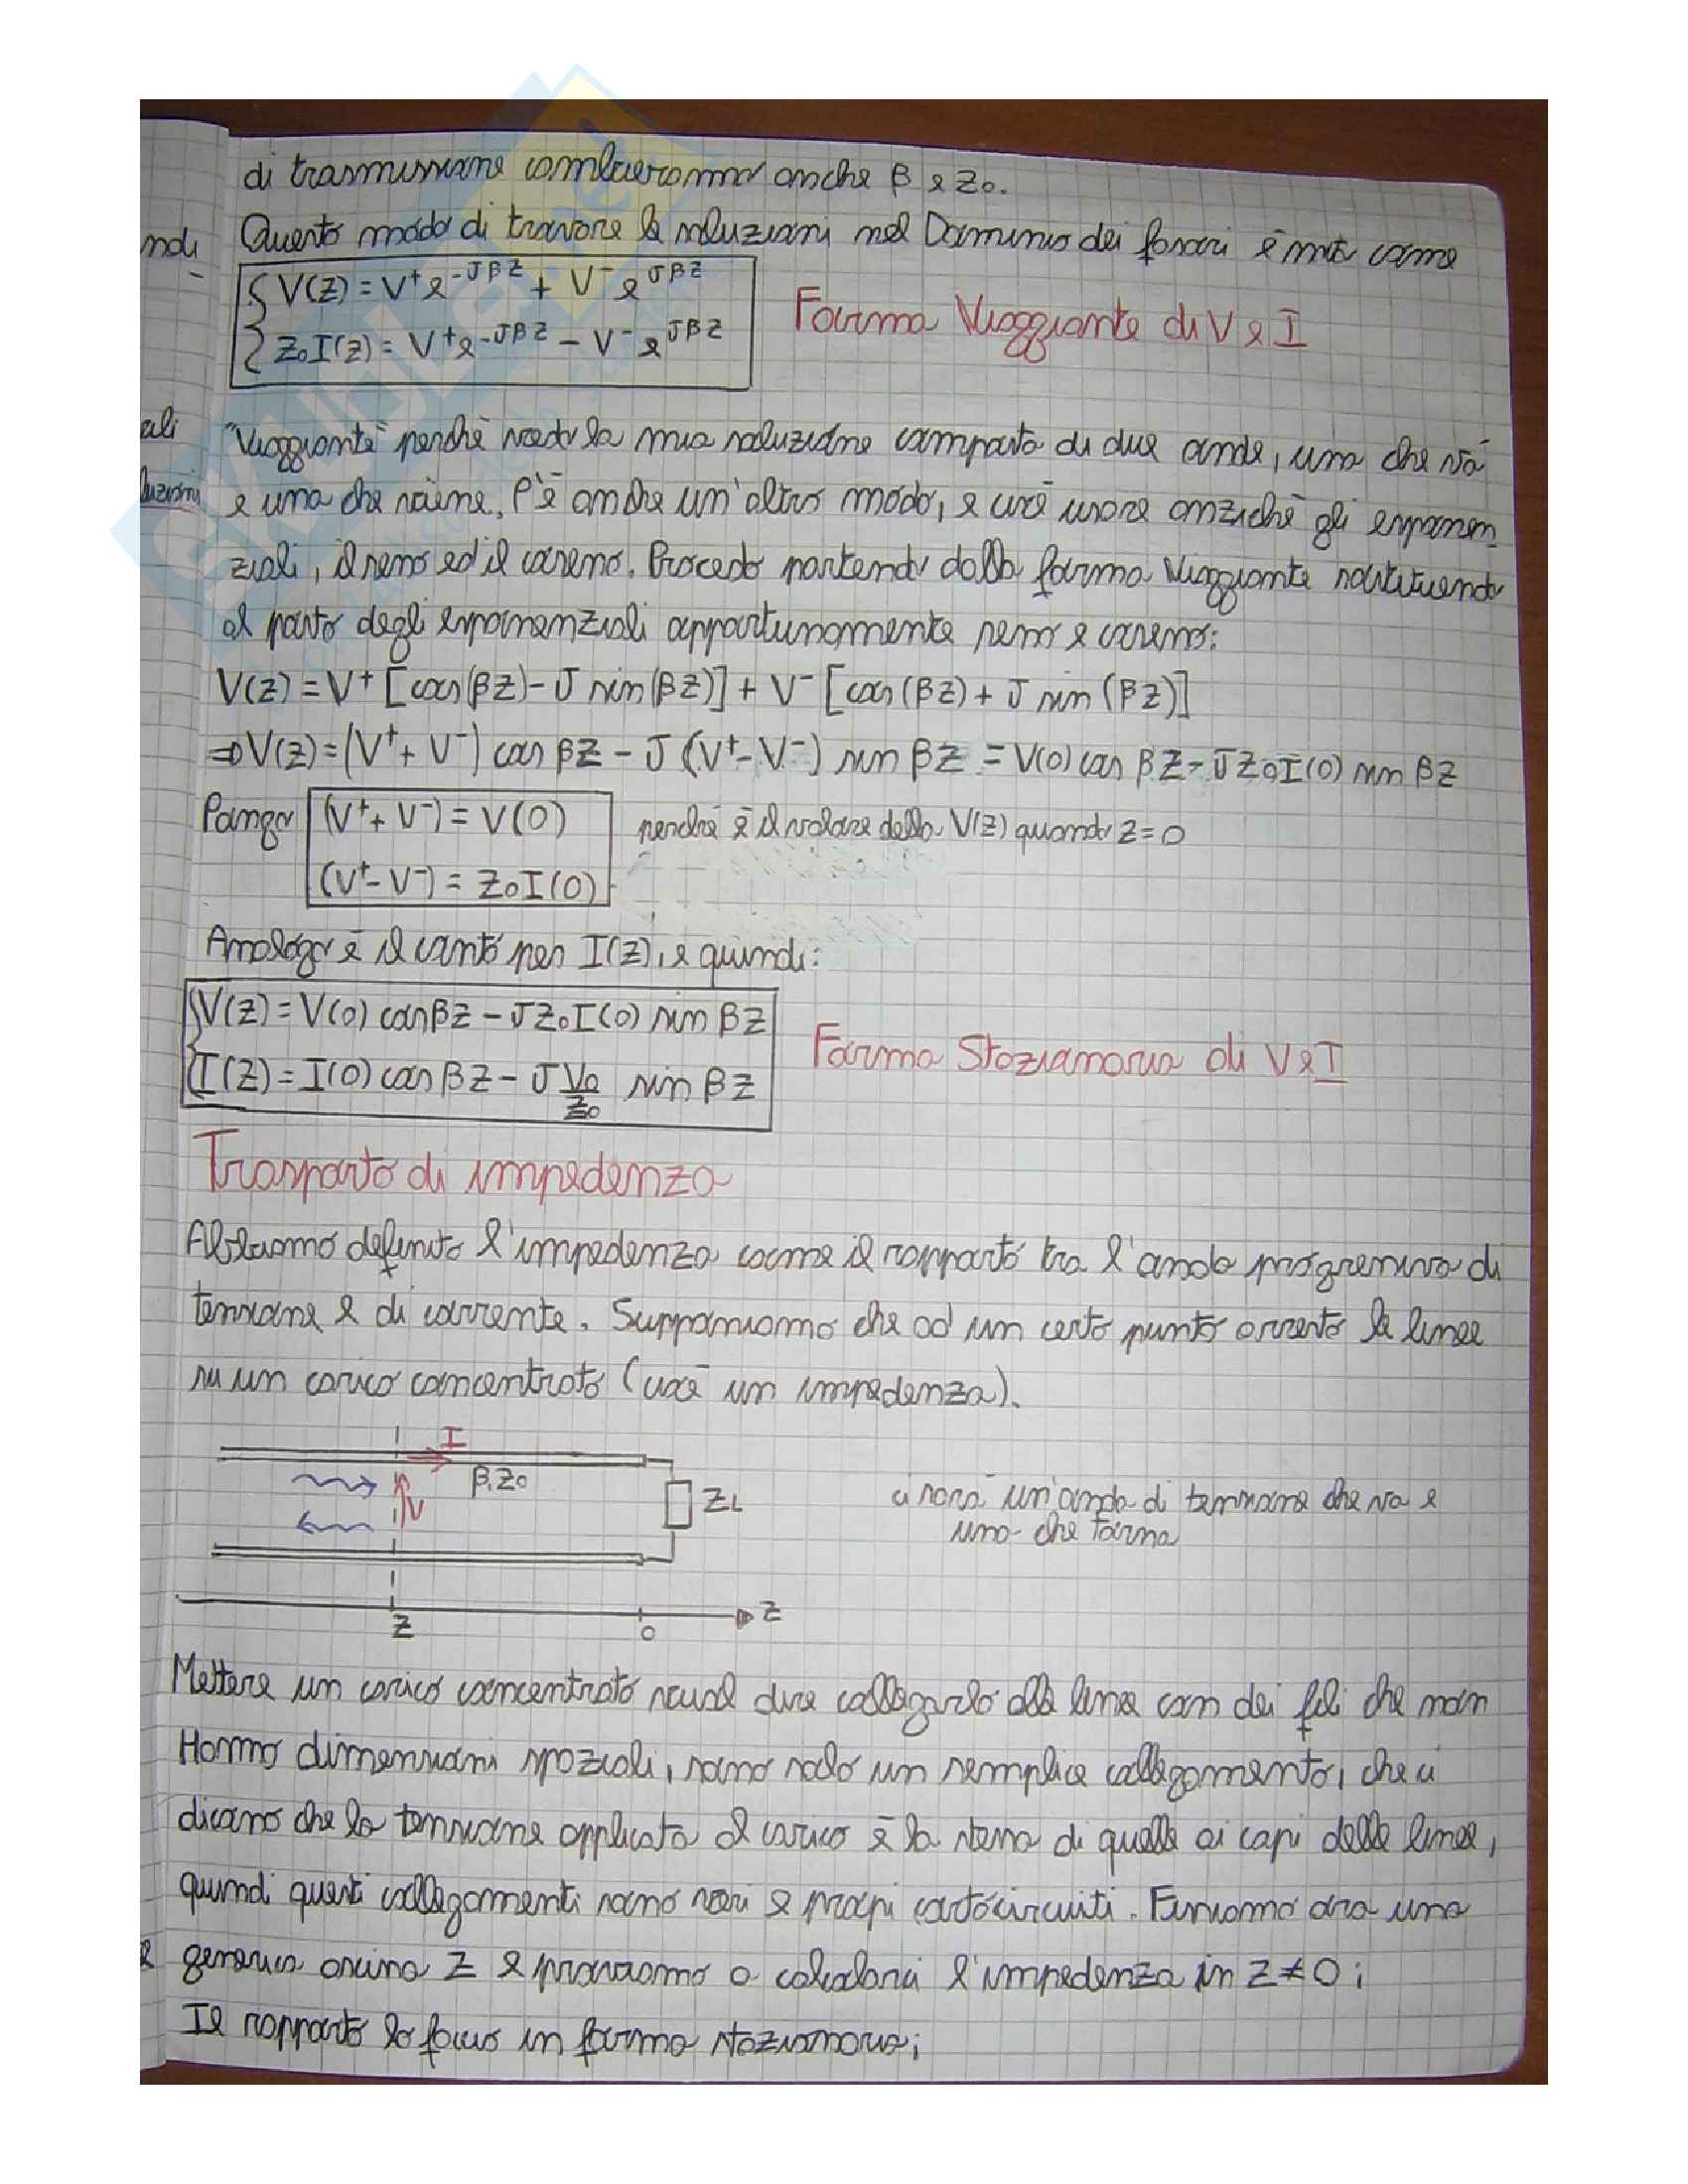 di trasmissione cambieranno anche β e Z₀.
Questo modo di trovare le soluzioni nel Dominio dei fasori è nota come
{ V(z) = V⁺e^(-Jβz) + V⁻e^(Jβz)
{ Z₀I(z) = V⁺e^(-Jβz) - V⁻e^(Jβz)
Forma Viaggiante di V e I
"Viaggiante" perché vedo la mia soluzione composta di due onde, una che và
e una che viene. C'è anche un'altro modo, e cioè usare anziché gli esponen_
ziali, il seno ed il coseno. Procedo partendo dalla forma Viaggiante sostituendo
al posto degli esponenziali opportunamente seno e coseno:
V(z) = V⁺ [cos(βz) - J sin(βz)] + V⁻ [cos(βz) + J sin(βz)]
⇒ V(z) = (V⁺ + V⁻) cos βz - J (V⁺ - V⁻) sin βz = V(0) cos βz - JZ₀I(0) sin βz
Pongo (V⁺ + V⁻) = V(0) perché è il valore della V(z) quando z=0
(V⁺ - V⁻) = Z₀I(0)
Analogo è il conto per I(z), e quindi:
{ V(z) = V(0) cos βz - JZ₀I(0) sin βz
{ I(z) = I(0) cos βz - J V₀/Z₀ sin βz
Forma Stazionaria di V e I
Trasporto di impedenza
Abbiamo definito l'impedenza come il rapporto tra l'onda progressiva di
tensione e di corrente. Supponiamo che ad un certo punto arresto la linea
su un carico concentrato (cioè un impedenza).
I
β, Z₀
V
ZL
ci sarà un'onda di tensione che va e
una che torna
z
z
0
Mettere un carico concentrato vuol dire collegarlo alla linea con dei fili che non
Hanno dimensioni spaziali, sono solo un semplice collegamento, che ci
dicono che la tensione applicata al carico è la stessa di quella ai capi della linea,
quindi questi collegamenti sono veri e propi cortocircuiti. Fissiamo ora una
generica ascissa z e proviamo a calcolarci l'impedenza in z≠0;
Il rapporto lo faccio in forma stazionaria;
ndi
ali
luzioni
e